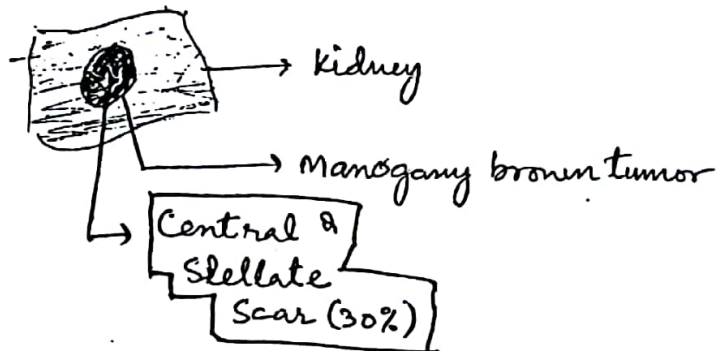 Kidney
Manogany brown tumor
Central &
Stellate
Scar (30%)